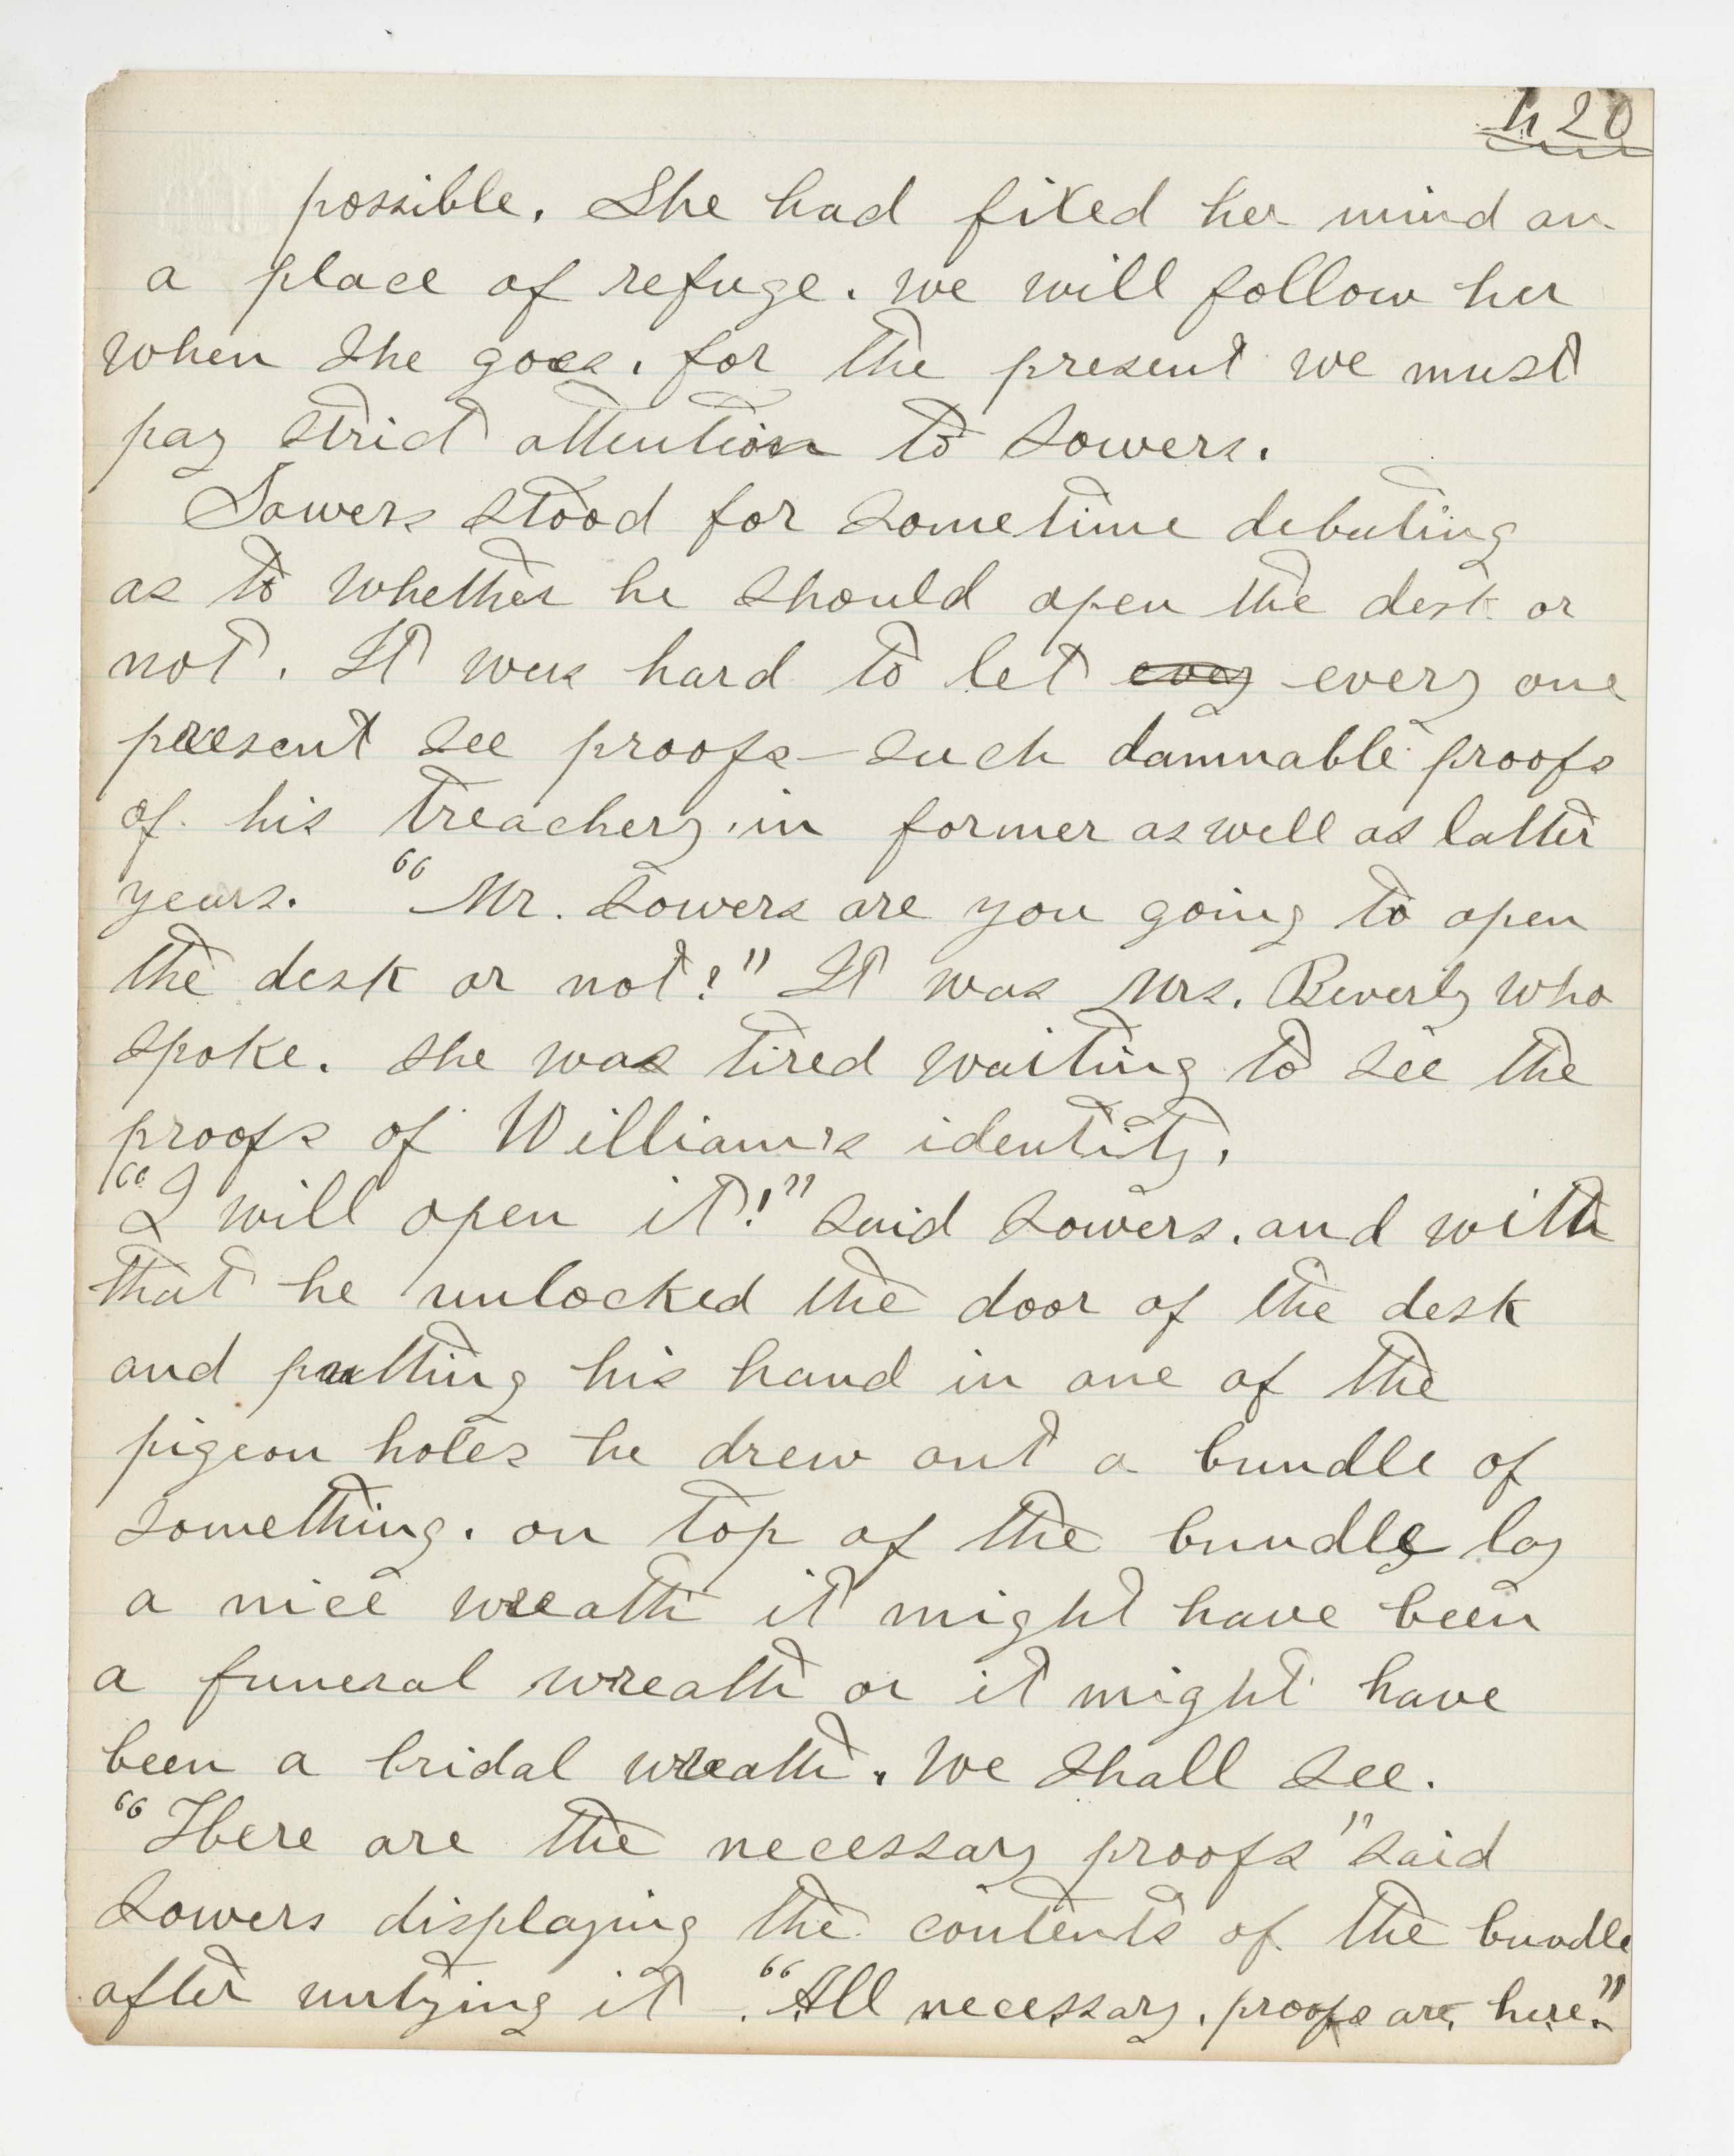 420
possible. She had fixed her mind on
a place of refuge. we will follow her
when she goes. for the present we must
pay strict attention to Sowers.
Sowers stood for sometime debating
as to whether he should open the desk or
not. It was hard to let evey every one
present see proofs - such damnable proofs
of his treachery in former as well as latter
years. "Mr. Sowers are you going to open
the desk or not?" It was Mrs. Beverly who
spoke. she was tired waiting to see the
proofs of William's identity.
"I will open it!" said Sowers. and with
that he unlocked the door of the desk
and putting his hand in one of the
pigeon holes he drew out a bundle of
something. on top of the bundle lay
a nice wreath it might have been
a funeral wreath or it might have
been a bridal wreath. we shall see.
"Here are the necessary proofs" said
Sowers displaying the contents of the bundle
after untying it. "All necessary proofs are here."